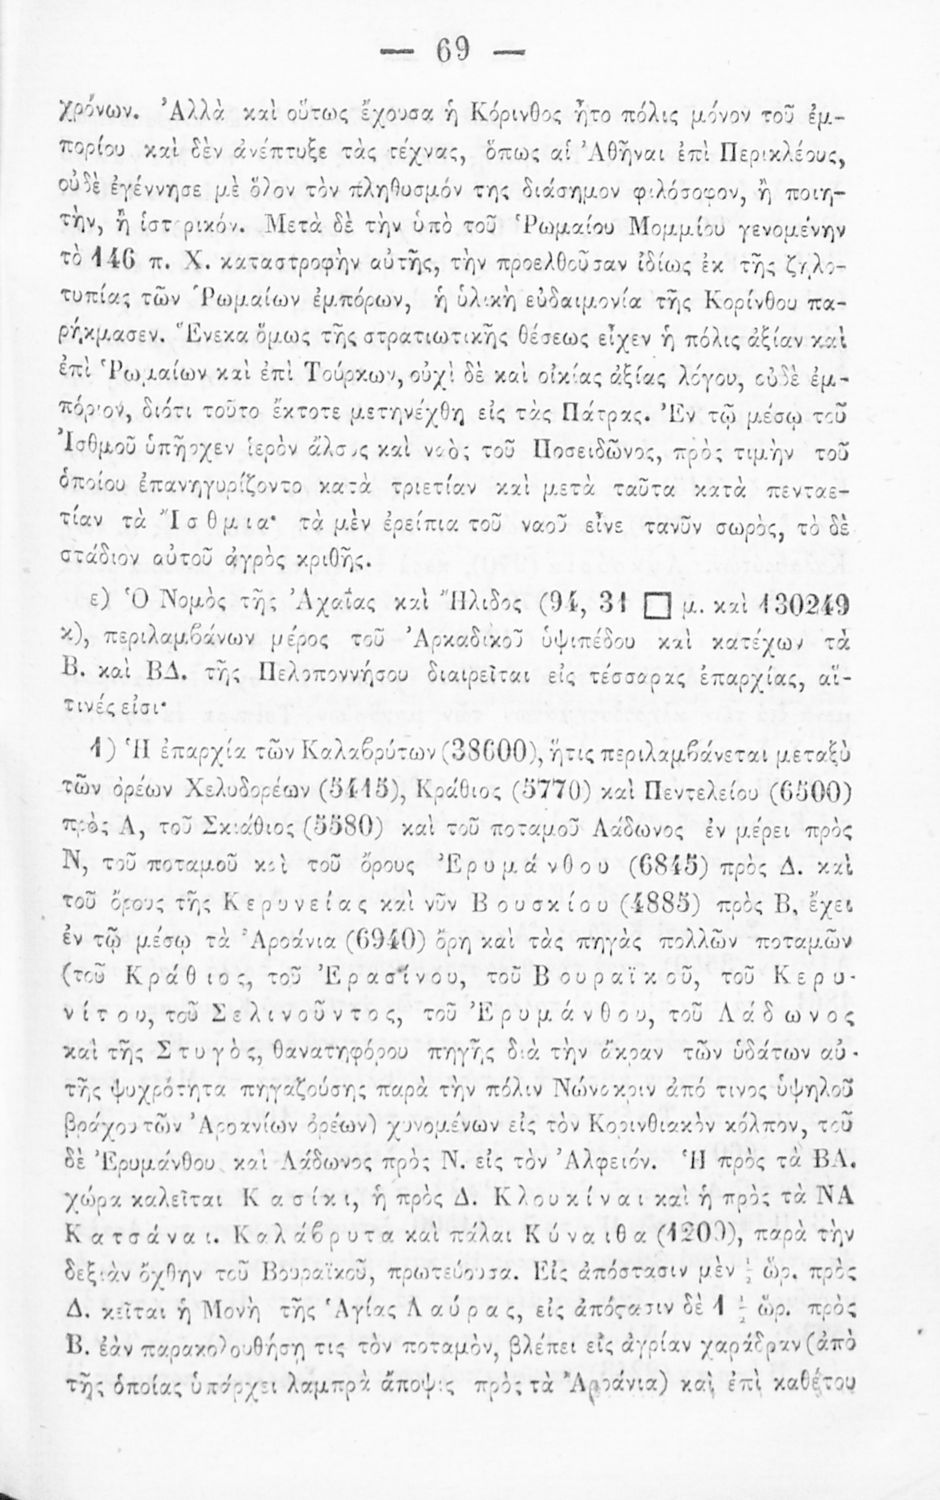 — 69 —
χρόνων. Ἀλλὰ καὶ οὕτως ἔχουσα ἡ Κόρινθος ἦτο πόλις μόνον τοῦ ἐμ-
πορίου καὶ δὲν ἀνέπτυξε τὰς τέχνας, ὅπως αἱ Ἀθῆναι ἐπὶ Περικλέους,
οὐδὲ ἐγέννησε μὲ ὅλον τὸν πληθυσμόν της διάσημον φιλόσοφον, ἢ ποιη-
τὴν, ἢ ἱστορικόν. Μετὰ δὲ τὴν ὑπὸ τοῦ Ῥωμαίου Μομμίου γενομένην
τὸ 146 π. Χ. καταστροφὴν αὐτῆς, τὴν προελθοῦσαν ἰδίως ἐκ τῆς ζηλο-
τυπίας τῶν Ῥωμαίων ἐμπόρων, ἡ ὑλικὴ εὐδαιμονία τῆς Κορίνθου πα-
ρήκμασεν. Ἕνεκα ὅμως τῆς στρατιωτικῆς θέσεως εἶχεν ἡ πόλις ἀξίαν καὶ
ἐπὶ Ῥωμαίων καὶ ἐπὶ Τούρκων, οὐχὶ δὲ καὶ οἰκίας ἀξίας λόγου, οὐδὲ ἐμ-
πόριον, διότι τοῦτο ἔκτοτε μετηνέχθη εἰς τὰς Πάτρας. Ἐν τῷ μέσῳ τοῦ
Ἰσθμοῦ ὑπῆρχεν ἱερὸν ἄλσος καὶ ναὸς τοῦ Ποσειδῶνος, πρὸς τιμὴν τοῦ
ὁποίου ἐπανηγυρίζοντο κατὰ τριετίαν καὶ μετὰ ταῦτα κατὰ πενταε-
τίαν τὰ Ἴσθμια· τὰ μὲν ἐρείπια τοῦ ναοῦ εἶνε τανῦν σωρὸς, τὸ δὲ
στάδιον αὐτοῦ ἀγρὸς κριθῆς.
ε) Ὁ Νομὸς τῆς Ἀχαΐας καὶ Ἤλιδος (94, 31 □ μ. καὶ 130249
κ), περιλαμβάνων μέρος τοῦ Ἀρκαδικοῦ ὑψιπέδου καὶ κατέχων τὰ
Β. καὶ ΒΔ. τῆς Πελοποννήσου διαιρεῖται εἰς τέσσαρας ἐπαρχίας, αἵ-
τινές εἰσι·
1) Ἡ ἐπαρχία τῶν Καλαβρύτων (38600), ἥτις περιλαμβάνεται μεταξὺ
τῶν ὀρέων Χελυδορέων (5415), Κράθιος (5770) καὶ Πεντελείου (6500)
πρὸς Α, τοῦ Σκιάθιος (5580) καὶ τοῦ ποταμοῦ Λάδωνος ἐν μέρει πρὸς
Ν, τοῦ ποταμοῦ καὶ τοῦ ὄρους Ἐρυμάνθου (6845) πρὸς Δ. καὶ
τοῦ ὄρους τῆς Κερυνείας καὶ νῦν Βουσκίου (4885) πρὸς Β, ἔχει
ἐν τῷ μέσῳ τὰ Ἀροάνια (6940) ὄρη καὶ τὰς πηγὰς πολλῶν ποταμῶν
(τοῦ Κράθιος, τοῦ Ἐρασίνου, τοῦ Βουραϊκοῦ, τοῦ Κερυ-
νίτου, τοῦ Σελινοῦντος, τοῦ Ἐρυμάνθου, τοῦ Λάδωνος
καὶ τῆς Στυγὸς, θανατηφόρου πηγῆς διὰ τὴν ἄκραν τῶν ὑδάτων αὐ-
τῆς ψυχρότητα πηγαζούσης παρὰ τὴν πόλιν Νώνακριν ἀπό τινος ὑψηλοῦ
βράχου τῶν Ἀροανίων ὀρέων) χυνομένων εἰς τὸν Κορινθιακὸν κόλπον, τοῦ
δὲ Ἐρυμάνθου καὶ Λάδωνος πρὸς Ν. εἰς τὸν Ἀλφειόν. Ἡ πρὸς τὰ ΒΑ.
χώρα καλεῖται Κασίκι, ἡ πρὸς Δ. Κλουκίναι καὶ ἡ πρὸς τὰ ΝΑ
Κατσάναι. Καλάβρυτα καὶ πάλαι Κύναιθα (1200), παρὰ τὴν
δεξιὰν ὄχθην τοῦ Βουραϊκοῦ, πρωτεύουσα. Εἰς ἀπόστασιν μὲν ½ ὥρ. πρὸς
Δ. κεῖται ἡ Μονὴ τῆς Ἁγίας Λαύρας, εἰς ἀπόστασιν δὲ 1 ½ ὥρ. πρὸς
Β. ἐὰν παρακολουθήσῃ τις τὸν ποταμὸν, βλέπει εἰς ἀγρίαν χαράδραν (ἀπὸ
τῆς ὁποίας ὑπάρχει λαμπρὰ ἄποψις πρὸς τὰ Ἀροάνια) καὶ ἐπὶ καθέτου